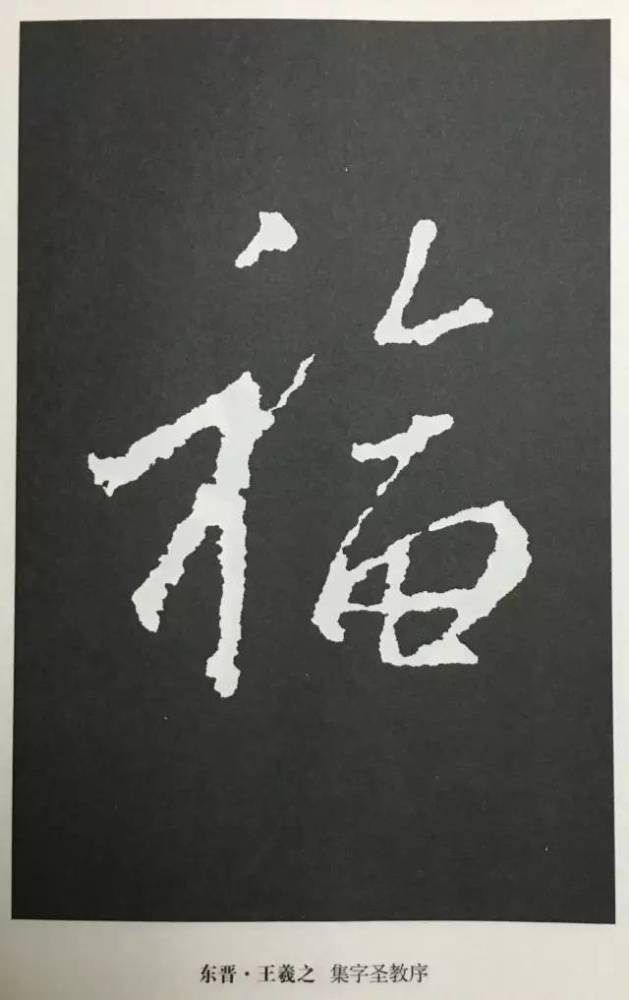 福
东晋·王羲之 集字圣教序